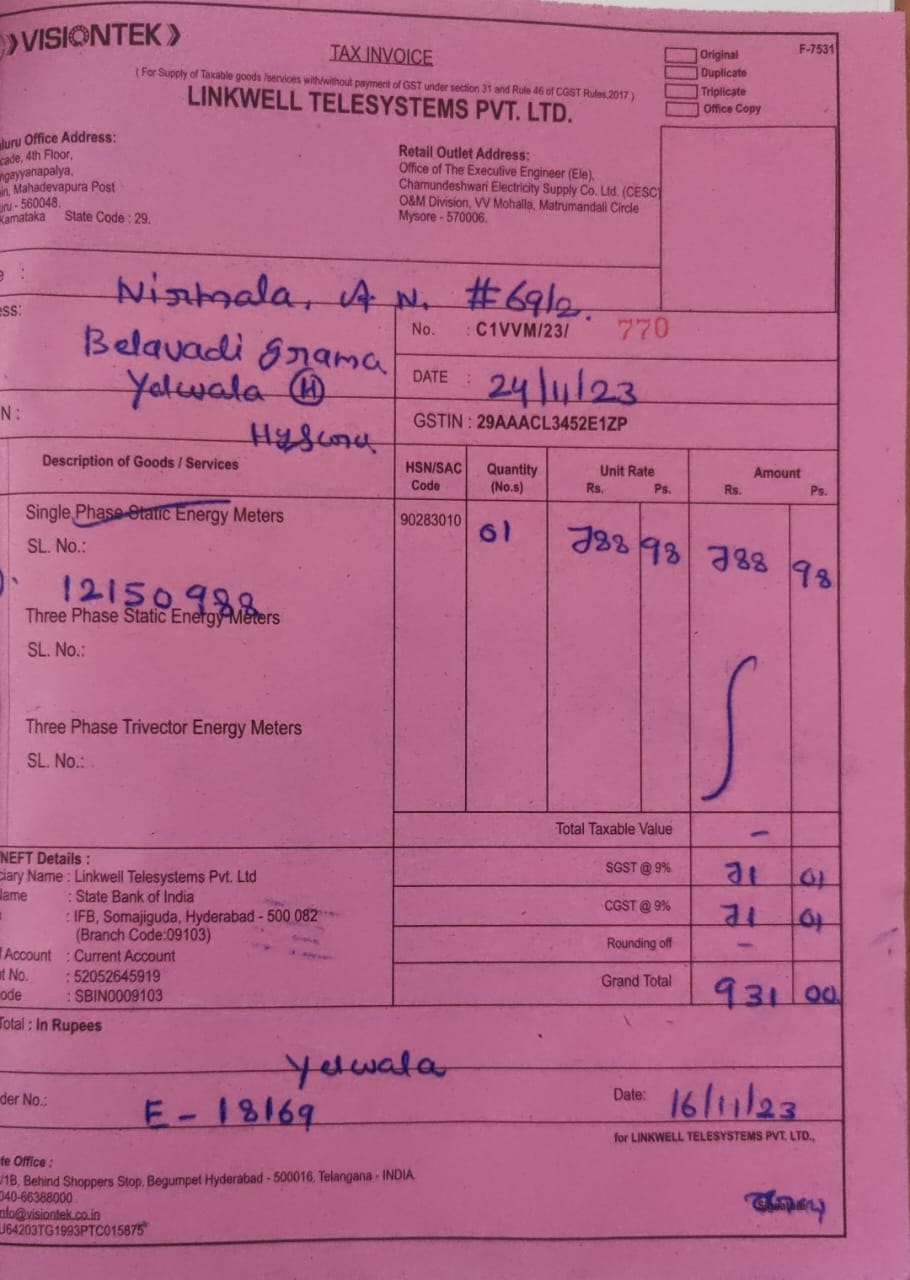 VISIONTEK
TAX INVOICE
( For Supply of Taxable goods /services with/without payment of GST under section 31 and Rule 46 of CGST Rules,2017 )
LINKWELL TELESYSTEMS PVT. LTD.
Original
Duplicate
Triplicate
Office Copy
F-7531
luru Office Address:
cade, 4th Floor,
ngayyanapalya,
in, Mahadevapura Post
uru - 560048.
Karnataka State Code : 29.
Retail Outlet Address:
Office of The Executive Engineer (Ele),
Chamundeshwari Electricity Supply Co. Ltd. (CESC)
O&M Division, VV Mohalla, Matrumandali Circle
Mysore - 570006.
e : Nirmala, A N. #69/2.
ess: Belavadi grama
Yelwala (H)
N :
No. : C1VVM/23/ 770
DATE : 24/11/23
GSTIN : 29AAACL3452E1ZP
Description of Goods / Services HSN/SAC Code Quantity (No.s) Unit Rate Rs. Ps. Amount Rs. Ps.
Single Phase Static Energy Meters 90283010 01 788 98 788 98
SL. No.:
12150988
Three Phase Static Energy Meters
SL. No.:
Three Phase Trivector Energy Meters
SL. No.:
Total Taxable Value -
SGST @ 9% 71 01
CGST @ 9% 71 01
Rounding off -
Grand Total 931 00
NEFT Details :
ciary Name : Linkwell Telesystems Pvt. Ltd
Name : State Bank of India
: IFB, Somajiguda, Hyderabad - 500 082
(Branch Code:09103)
f Account : Current Account
t No. : 52052645919
ode : SBIN0009103
Total : In Rupees
Yelwala
der No.: E - 18169
Date: 16/11/23
for LINKWELL TELESYSTEMS PVT. LTD.,
te Office :
/1B, Behind Shoppers Stop, Begumpet Hyderabad - 500016, Telangana - INDIA.
040-66388000
nfo@visiontek.co.in
U64203TG1993PTC015875